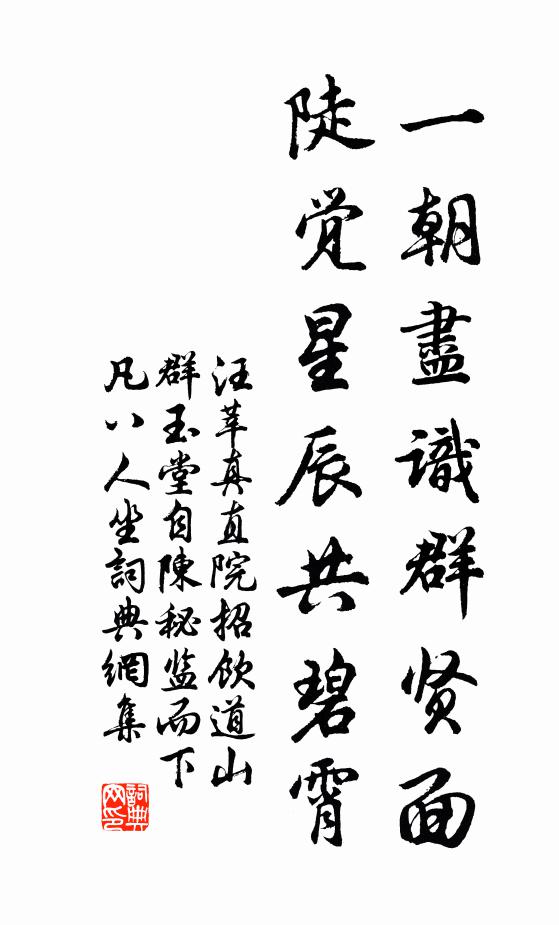 一朝盡識群贤面
陡覚星辰共碧霄
汪莘真直院招飲道山
群玉堂自陳秘监而下
凡八人坐詞典網集
詞典网印